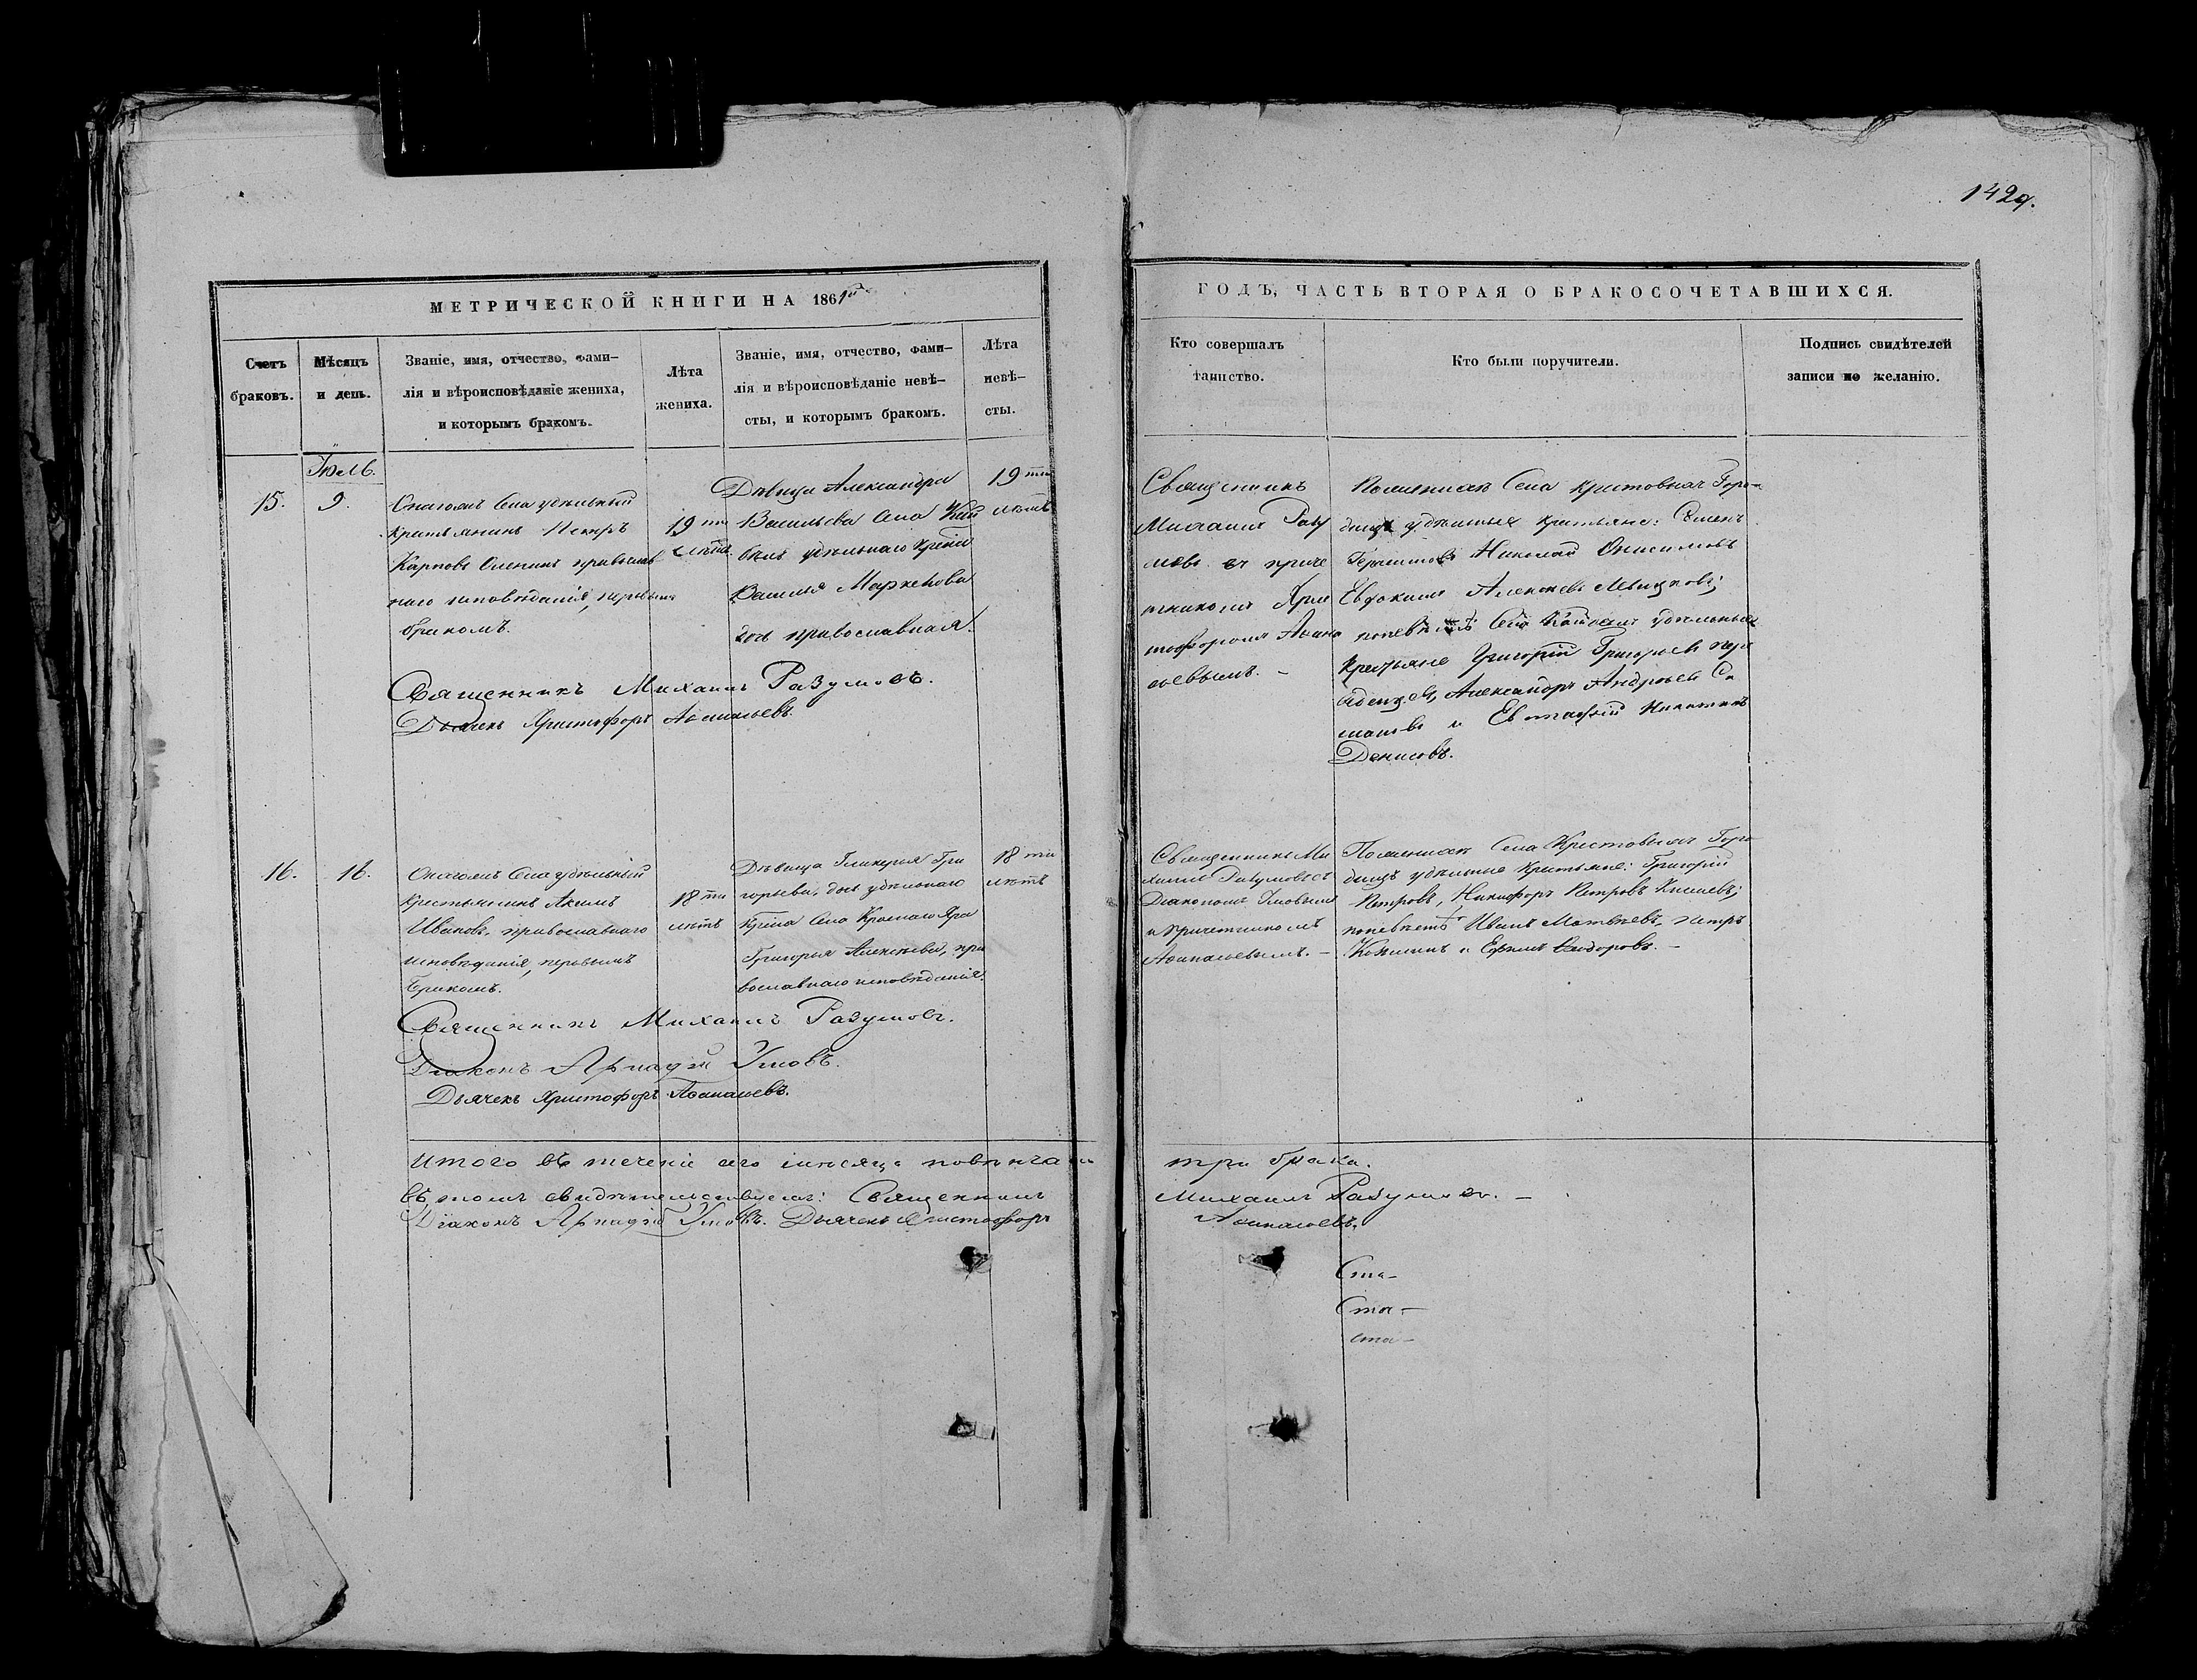 1429.
МЕТРИЧЕСКОЙ КНИГИ НА 1861й
ГОДЪ, ЧАСТЬ ВТОРАЯ О БРАКОСОЧЕТАВШИХСЯ.
Счетъ
браковъ.
Мѣсяцъ
и день.
Званіе, имя, отчество, фами-
лія и вѣроисповѣданіе жениха,
и которымъ бракомъ.
Лѣта
жениха.
Званіе, имя, отчество, фами-
лія и вѣроисповѣданіе невѣ-
сты, и которымъ бракомъ.
Лѣта
невѣ-
сты.
Кто совершалъ
таинство.
Кто были поручители.
Подпись свидѣтелей
записи по желанію.
Іюль.
15.
9.
Села удѣльный
Петръ
Карповъ православ
наго исповѣданія, первымъ
бракомъ.
19 ти
лѣтъ
Дѣвица Александра
Васильева Села
удѣльнаго
Василья
дочь православная.
19 ти
лѣтъ
Священникъ
Михаилъ Разу
мовъ съ приче
тникомъ Хрис
тофоромъ Афана
сьевымъ. –
Села Крестовыхъ Горо-
дищъ удѣльные крестьяне: Семенъ
Николай Онисимовъ
Евдокимъ Алексѣевъ
Села удѣльные
крестьяне Григорій Григорьевъ
Александръ Андреевъ Са
и Евстафій Никитинъ
Денисовъ.
Священникъ Михаилъ Разумовъ.
Дьячекъ Христофоръ Афанасьевъ.
16.
16.
Села удѣльный
крестьянинъ Акимъ
Ивановъ, православнаго
исповѣданія, первымъ
бракомъ.
18 ти
лѣтъ
Дѣвица Гликерія Гри
горьева, дочь удѣльнаго
Села Краснаго Яра
Григорья Алексѣева, пра
вославнаго исповѣданія.
18 ти
лѣтъ
Священникъ Ми
хаилъ Разумовъ съ
Діакономъ Умовымъ
и причетникомъ
Афанасьевымъ. –
Села Крестовыхъ Горо
дищъ удѣльные крестьяне: Григорій
Петровъ, Никифоръ Петровъ Киселевъ;
по невѣстѣ Иванъ Матвѣевъ, Петръ
и Ефимъ Сидоровъ. –
Священникъ Михаилъ Разумовъ.
Діаконъ Аркадій Умовъ.
Дьячекъ Христофоръ Афанасьевъ.
Итого въ теченіе сего мѣсяца повѣнчано
три брака.
въ томъ свидѣтельствуемъ: Священникъ
Михаилъ Разумовъ. –
Діаконъ Аркадій Умовъ. Дьячекъ Христофоръ
Афанасьевъ.
Ста-
Ста-
ста-